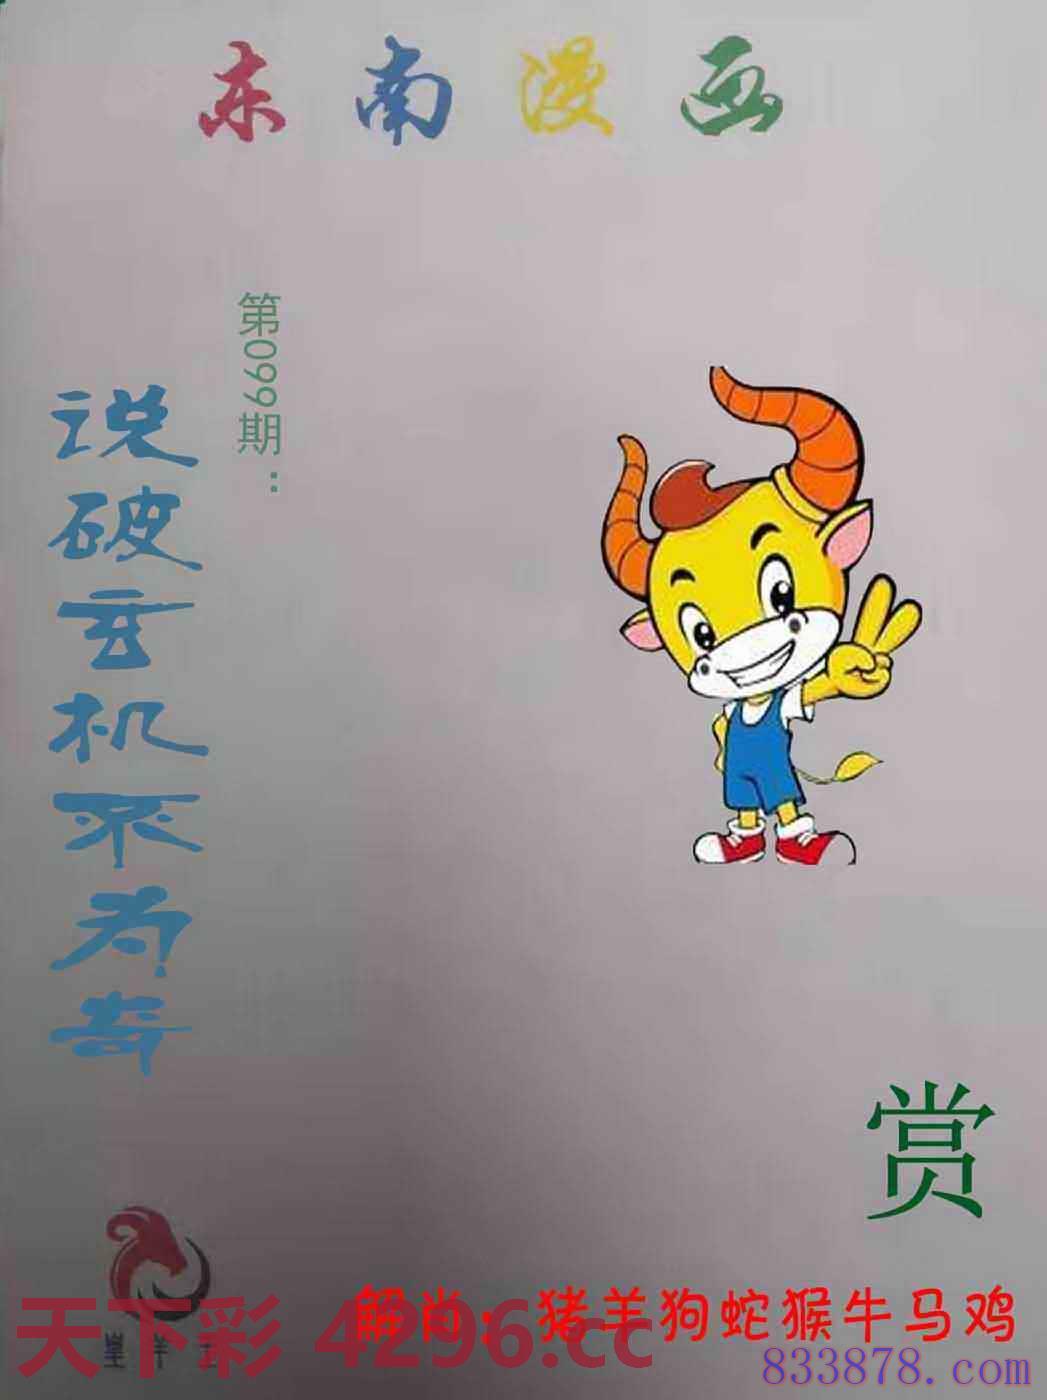 东南漫画
第099期：
说破玄机不为奇
赏
解肖：猪羊狗蛇猴牛马鸡
天下彩 4296.cc
833878.com